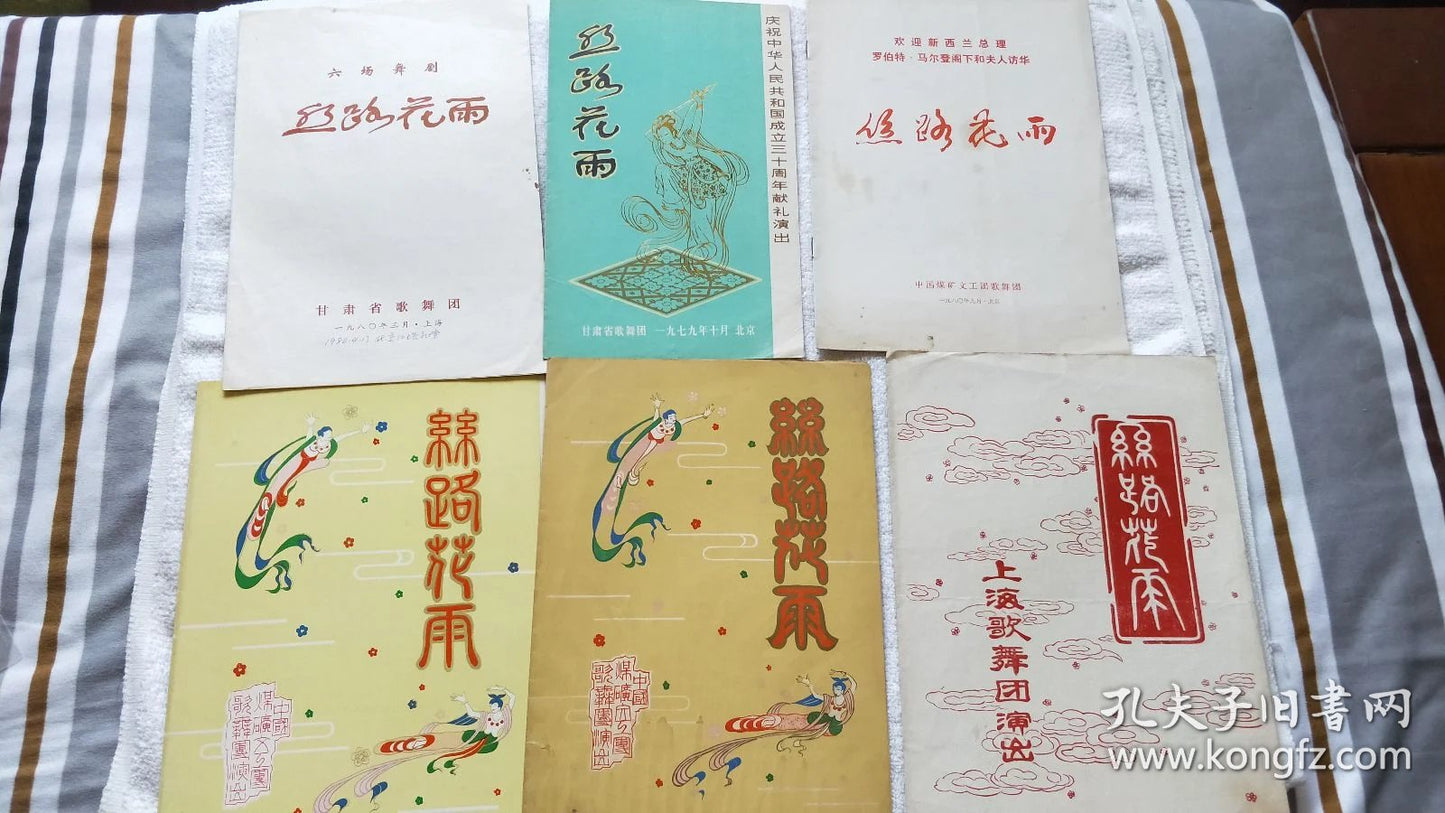 六场舞剧
丝路花雨
甘肃省歌舞团
一九八〇年三月·上海
丝路花雨
庆祝中华人民共和国成立三十周年献礼演出
甘肃省歌舞团 一九七九年十月 北京
欢迎新西兰总理
罗伯特·马尔登阁下和夫人访华
丝路花雨
中国煤矿文工团歌舞团
一九八〇年九月·北京
絲路花雨
中國
煤礦文工團
歌舞團演出
絲路花雨
中國
煤礦文工團
歌舞團演出
絲路花雨
上海歌舞团演出
孔夫子旧書网
www.kongfz.com